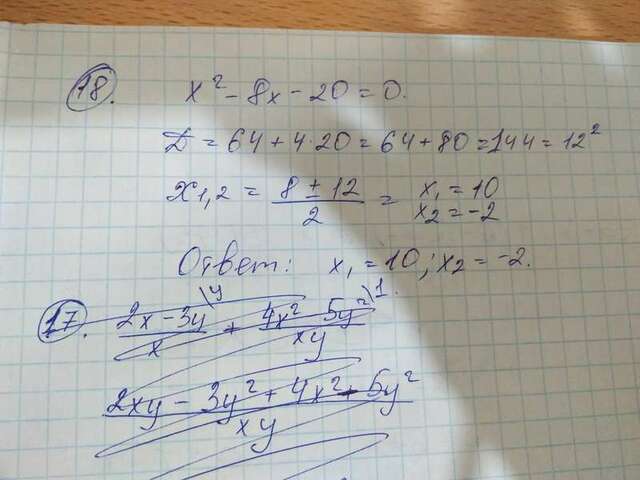 18. x² - 8x - 20 = 0.
D = 64 + 4·20 = 64 + 80 = 144 = 12²
x1,2 = (8 ± 12)/2 = x₁ = 10
x₂ = -2
Ответ: x₁ = 10; x₂ = -2.
17. (2x - 3y)/x \y + (4x² 5y²)/xy \1.
(2xy - 3y² + 4x² - 5y²)/xy